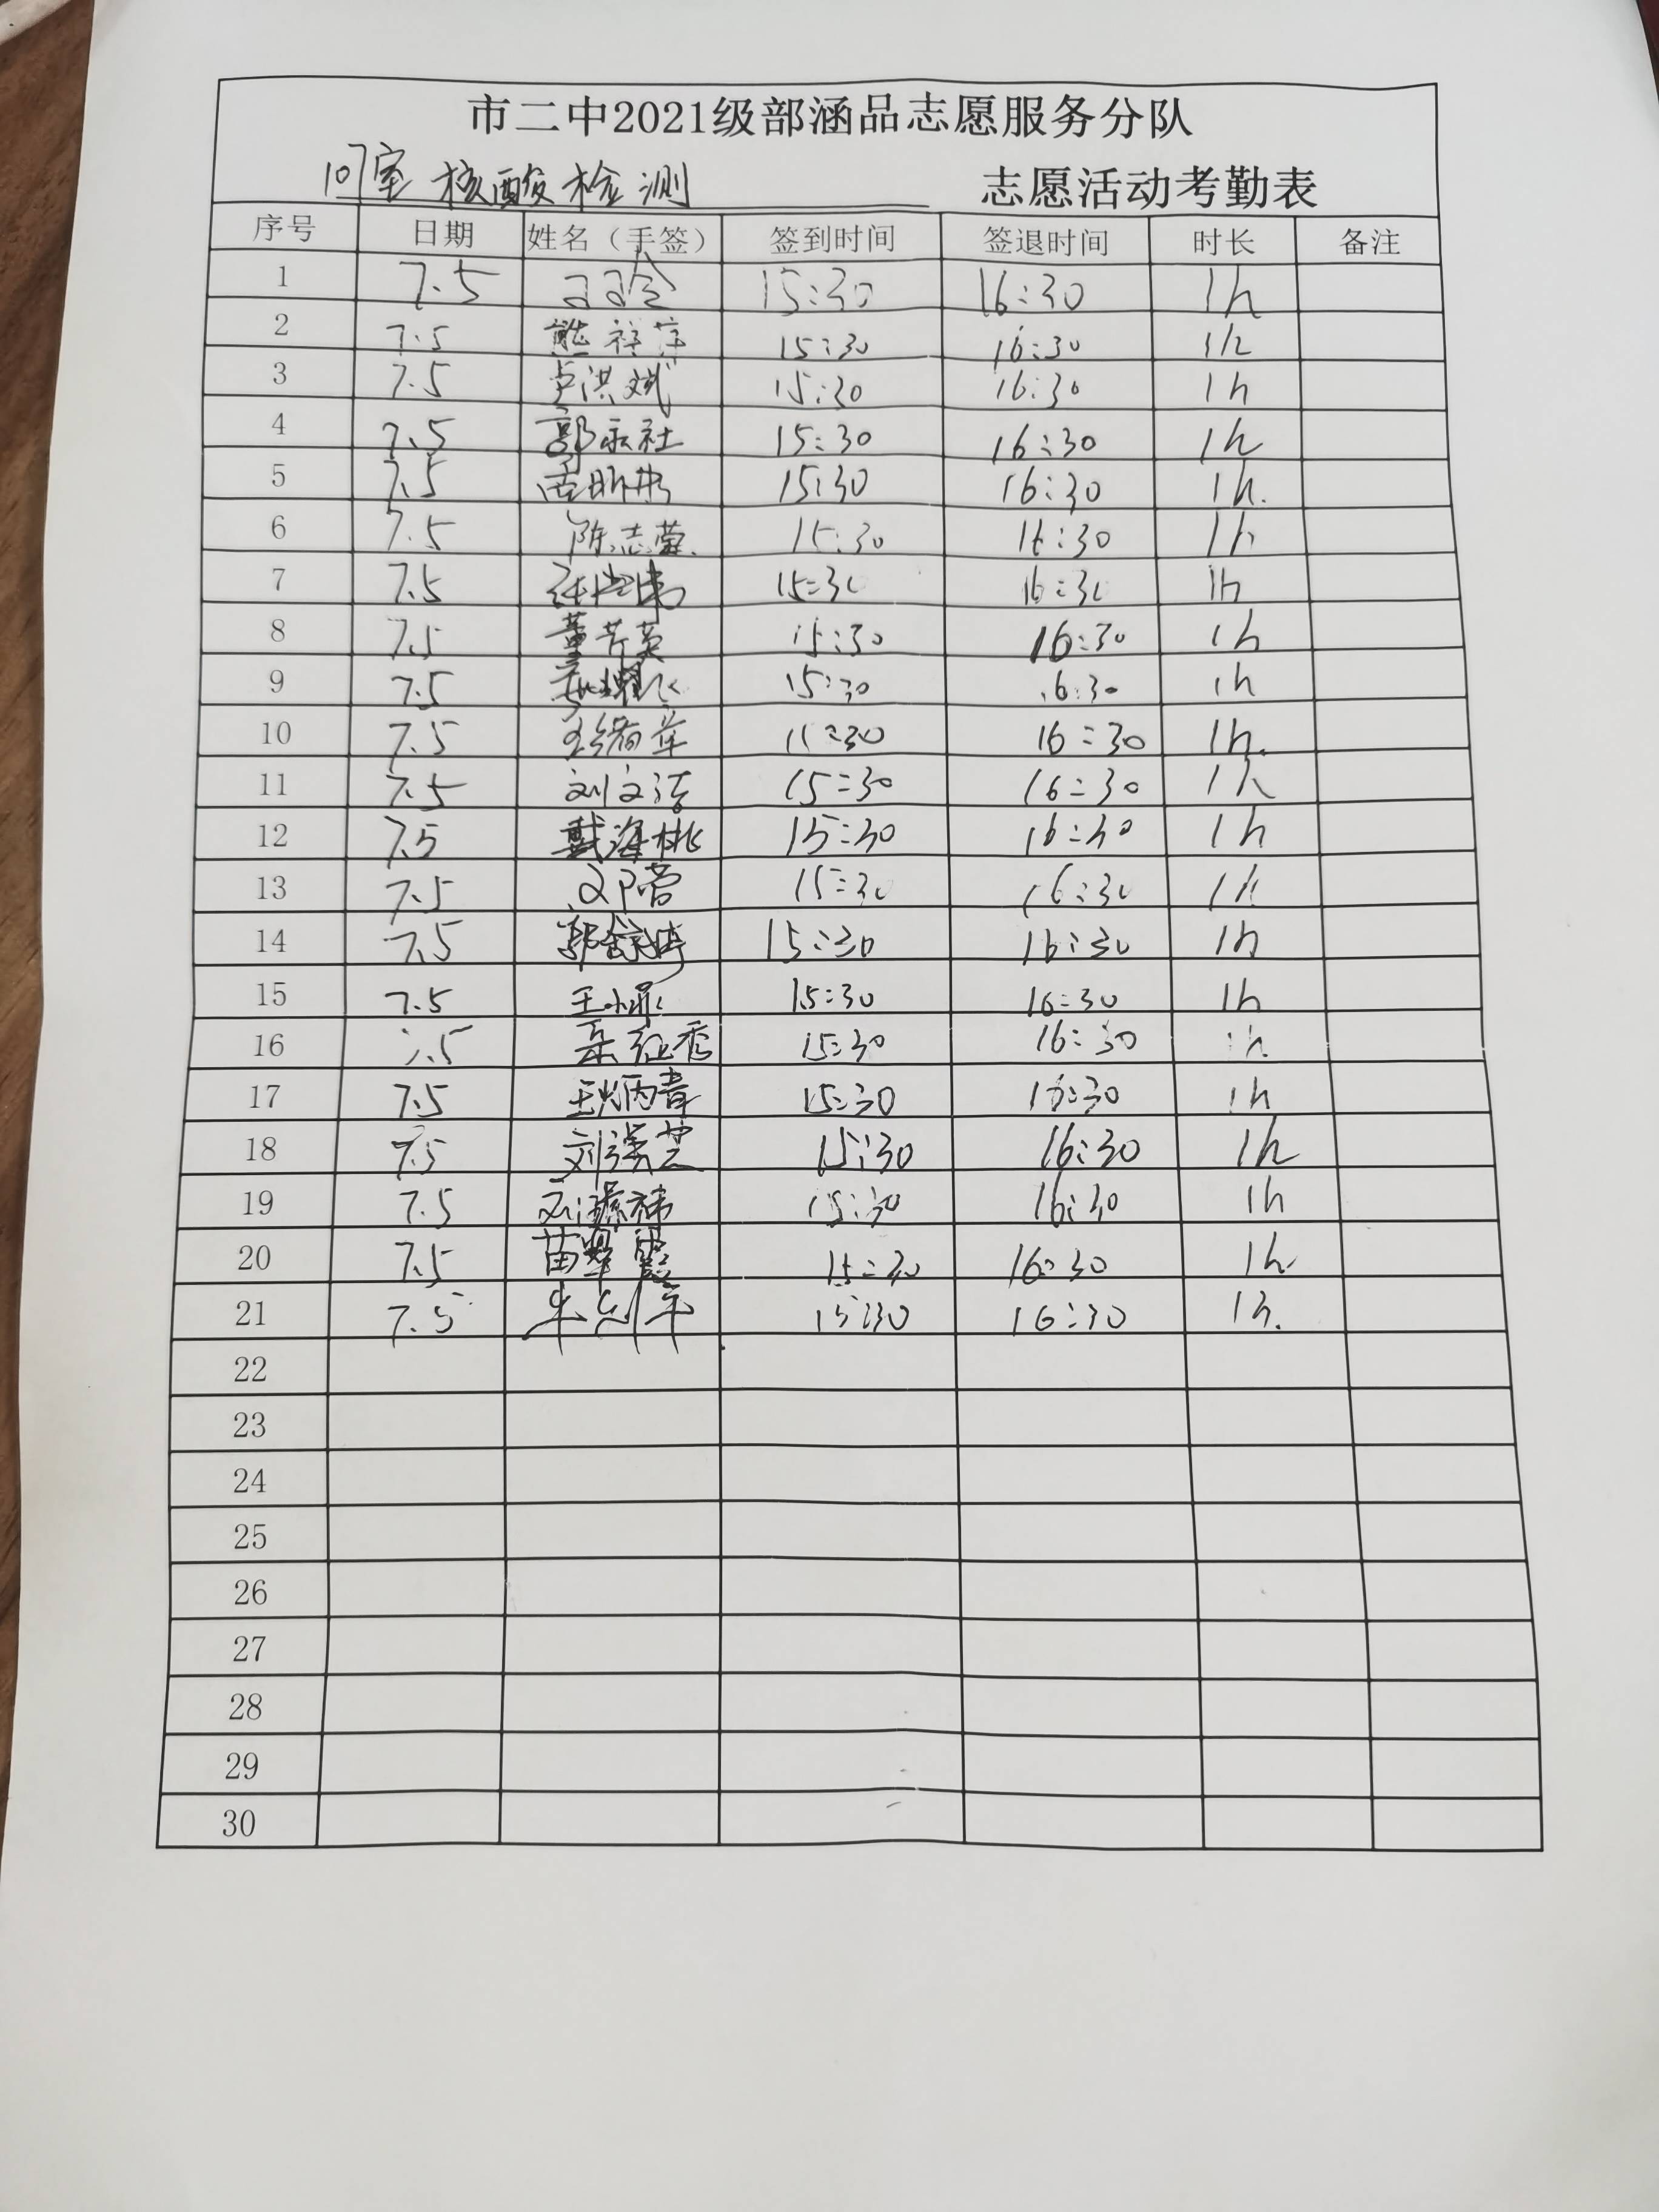 市二中2021级部涵品志愿服务分队
107室 核酸检测 志愿活动考勤表
序号 日期 姓名（手签） 签到时间 签退时间 时长 备注
1 7.5 15:30 16:30 1h
2 7.5 熊祥萍 15:30 16:30 1h
3 7.5 卢洪斌 15:30 16:30 1h
4 7.5 郭永社 15:30 16:30 1h
5 7.5 15:30 16:30 1h.
6 7.5 陈志莹 15:30 16:30 1h
7 7.5 15:30 16:30 1h
8 7.5 董芹英 15:30 16:30 1h
9 7.5 15:30 16:30 1h
10 7.5 15:30 16:30 1h.
11 7.5 刘文洁 15:30 16:30 1h
12 7.5 戴海桃 15:30 16:30 1h
13 7.5 邓营 15:30 16:30 1h
14 7.5 15:30 16:30 1h
15 7.5 王小 15:30 16:30 1h
16 7.5 红香 15:30 16:30 1h
17 7.5 王炳青 15:30 16:30 1h
18 7.5 刘芝 15:30 16:30 1h
19 7.5 刘 15:30 16:30 1h
20 7.5 苗翠霞 15:30 16:30 1h
21 7.5 15:30 16:30 1h.
22
23
24
25
26
27
28
29
30